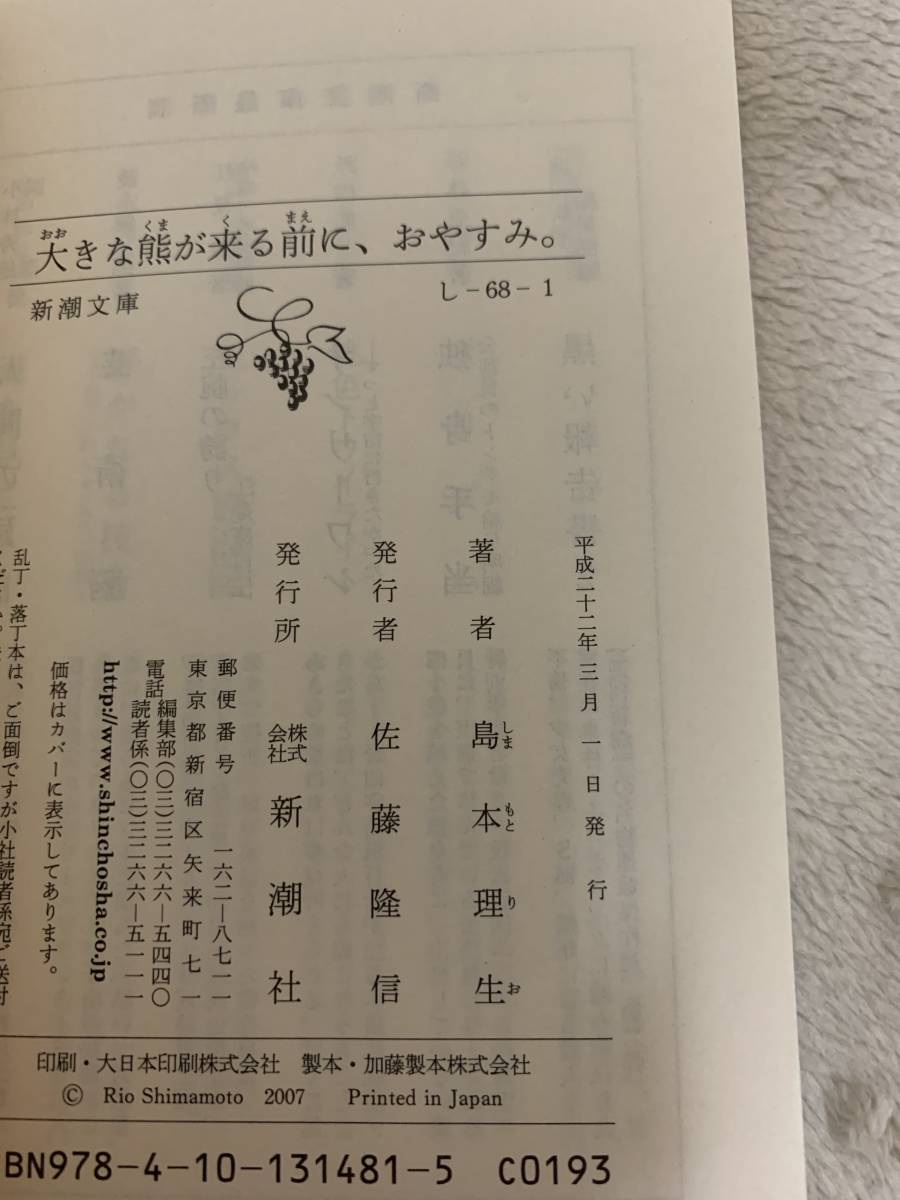 大きな熊が来る前に、おやすみ。
新潮文庫
し-68-1
平成二十二年三月一日発行
著者 島本理生
発行者 佐藤隆信
発行所 株式会社 新潮社
郵便番号 一六二―八七一一
東京都新宿区矢来町七一
電話 編集部(〇三)三二六六―五四四〇
読者係(〇三)三二六六―五一一一
http://www.shinchosha.co.jp
価格はカバーに表示してあります。
乱丁・落丁本は、ご面倒ですが小社読者係宛ご送付
印刷・大日本印刷株式会社 製本・加藤製本株式会社
© Rio Shimamoto 2007 Printed in Japan
BN978-4-10-131481-5 C0193